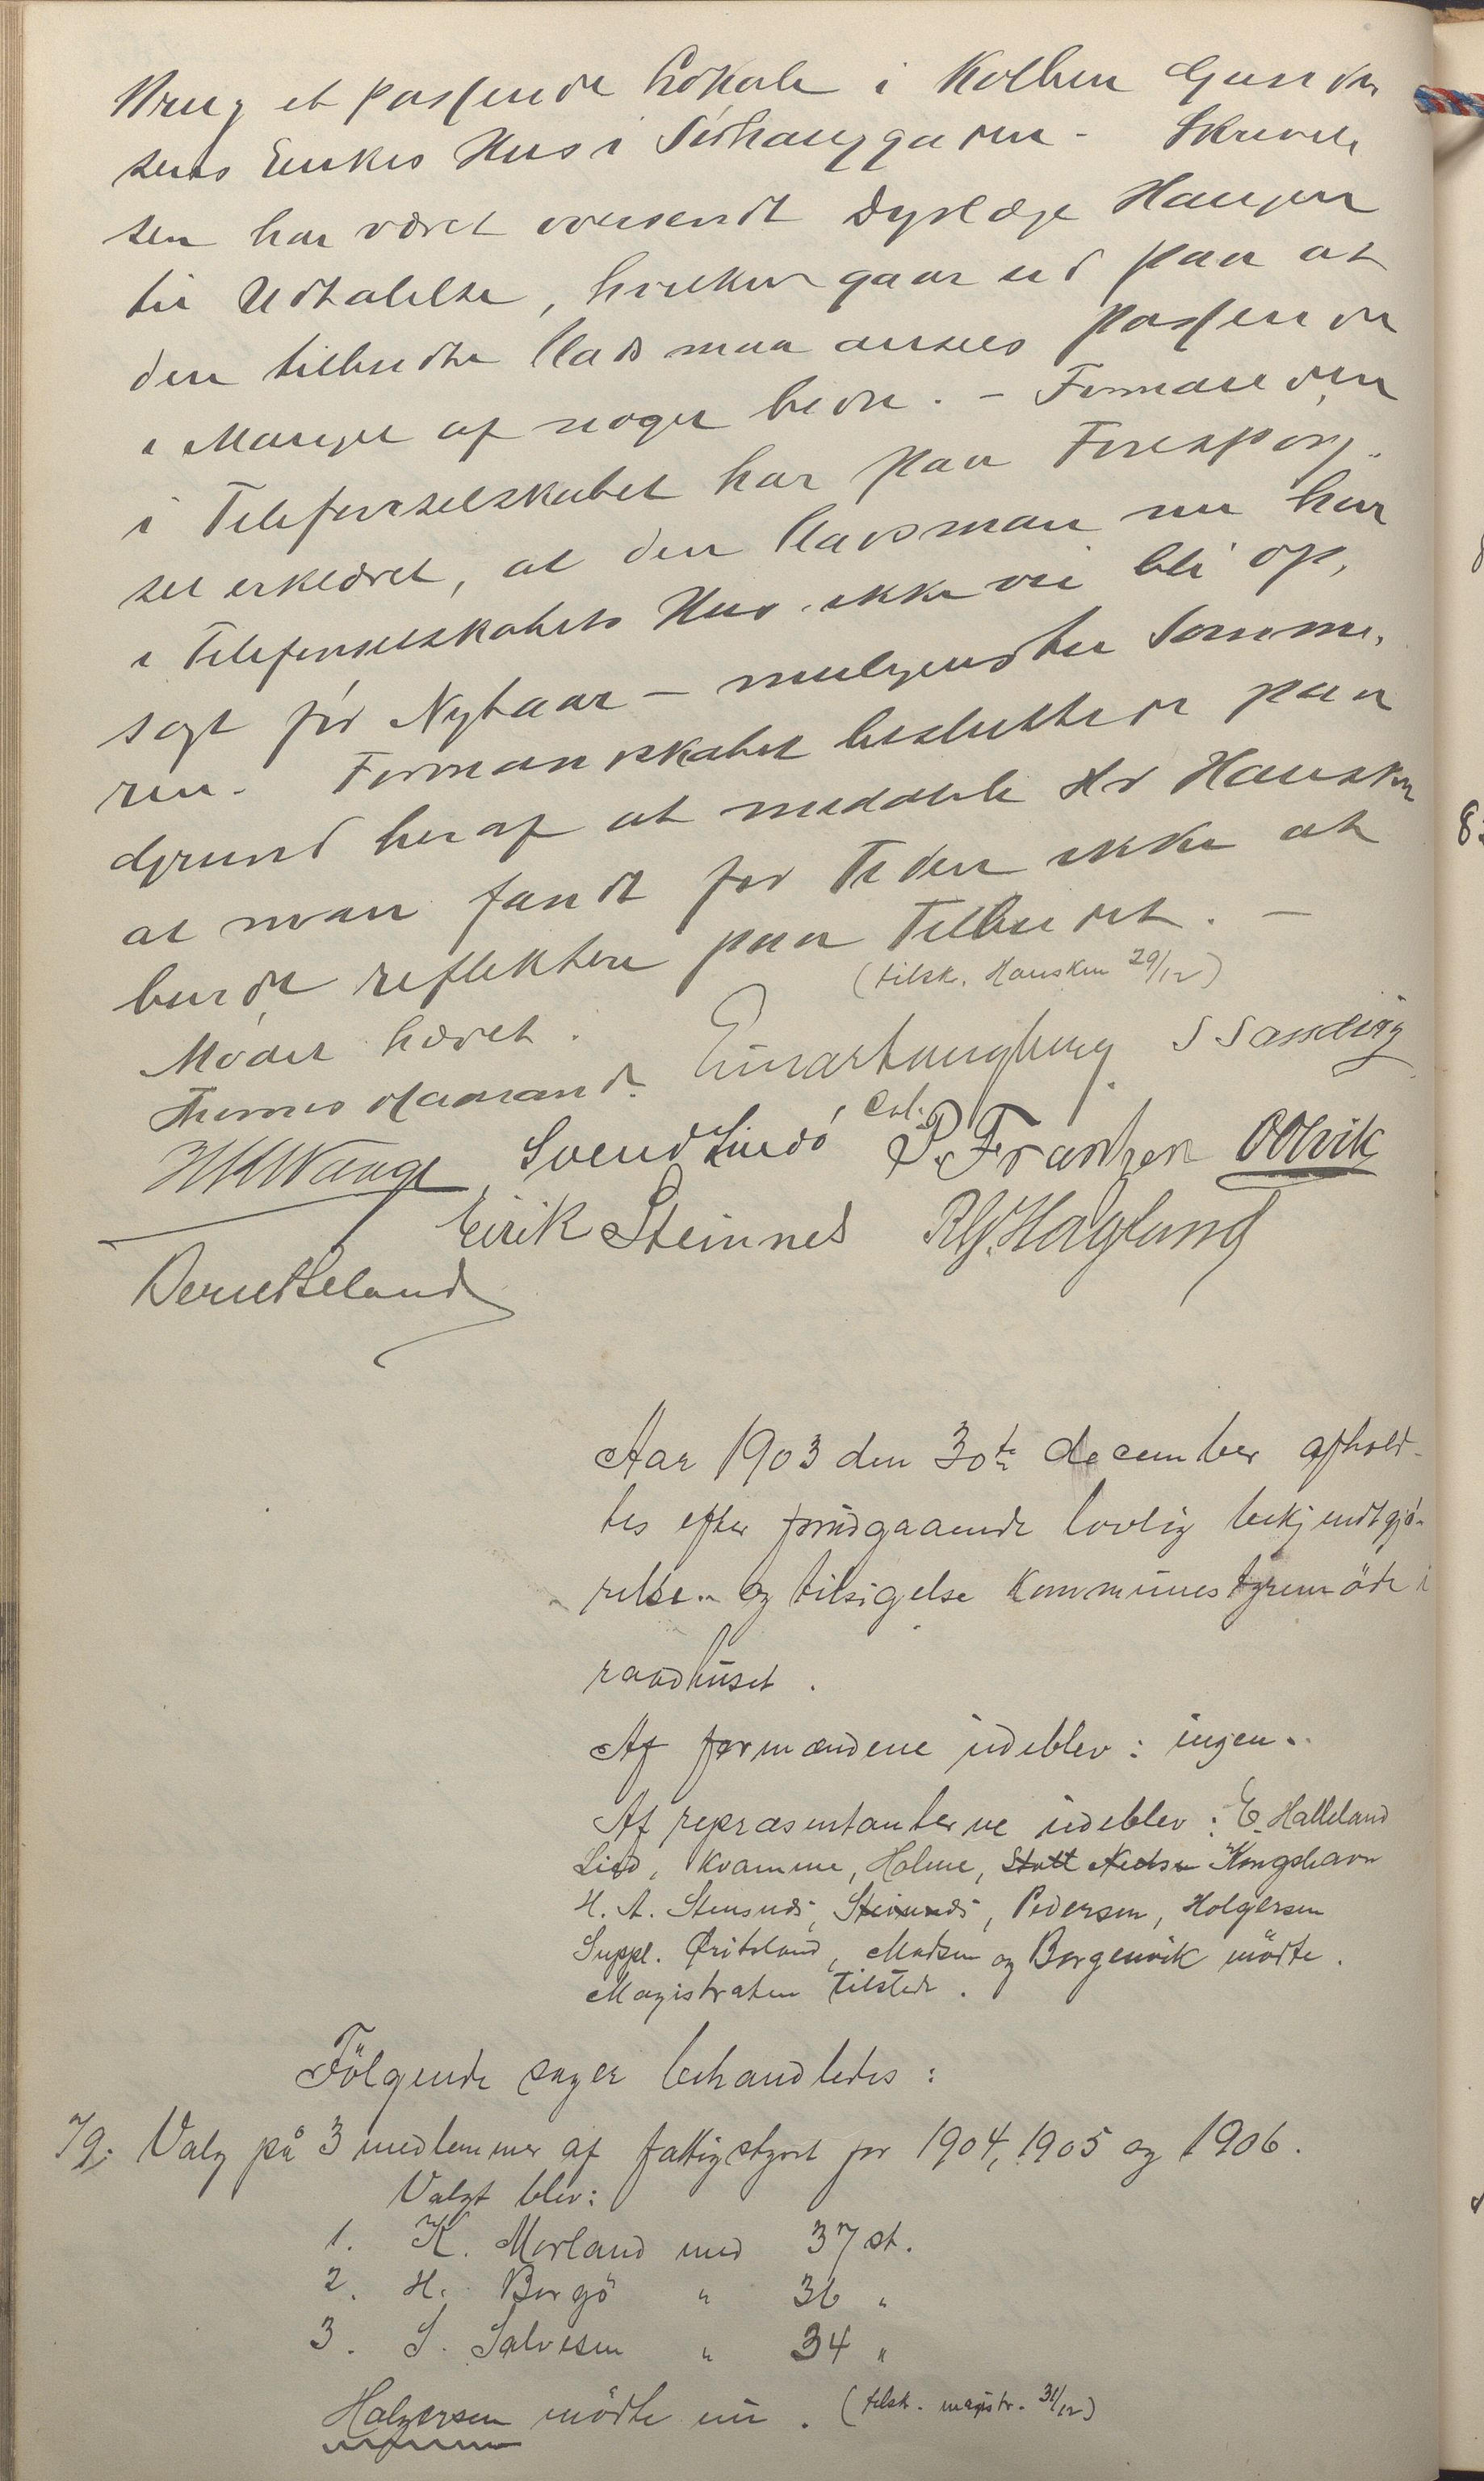 Brug et passende Lokale i Kolben Gunder
sens Enkes Hus i Sørhauggaden. Skrivel
sen har været oversendt Dyrlæge Haugen
til Udtalelse, hvilken gaar ud paa at
den tilbudte Plads maa ansees passende
i Mangel af nogen bedre. - Formanden
i Telefonselskabet har paa Forespørg-
sel erklæret, at den Plads man nu har
i Telefonselskabets Hus ikke vil bli op,
sagt før Nytaar - muligens til Somme,
ren. Formandskabet besluttede paa
Grund heraf at meddele Hr Hausken
at man fandt for Tiden ikke at
burde reflektere paa Tilbudet. -
(tilsk. Hausken 29/12)
Mødet hævet.
Thomas Aamand. Einar Laugberg S Sandvig
H H Waage Svend Lindø P. Frantzen O Olvik
Eirik Steinnes R.G. Haglund
Bernt Heland
Aar 1903 den 30te december afhold-
tes efter forudgaaende lovlig bekjendtgjø-
relse og tilsigelse kommunestyremöde i
raadhuset.
Af formændene udeblev: ingen.
Af repræsentanterne udeblev: E. Halleland
Lied, Kvamme, Holme, Kongshavn
H. A. Stensnes, Pedersen, Holgersen
Suppl. Öritsland, Madsen og Borgenvik mödte.
Magistraten tilstede.
Fölgende sager behandledes:
79. Valg på 3 medlemmer af fattigstyret for 1904, 1905 og 1906.
Valgt blev:
1. K. Morland med 37 st.
2. H. Borgö " 36 "
3. S. Salvesen " 34 "
Holgersen mödte nu. (tilsk. magistr. 31/12)